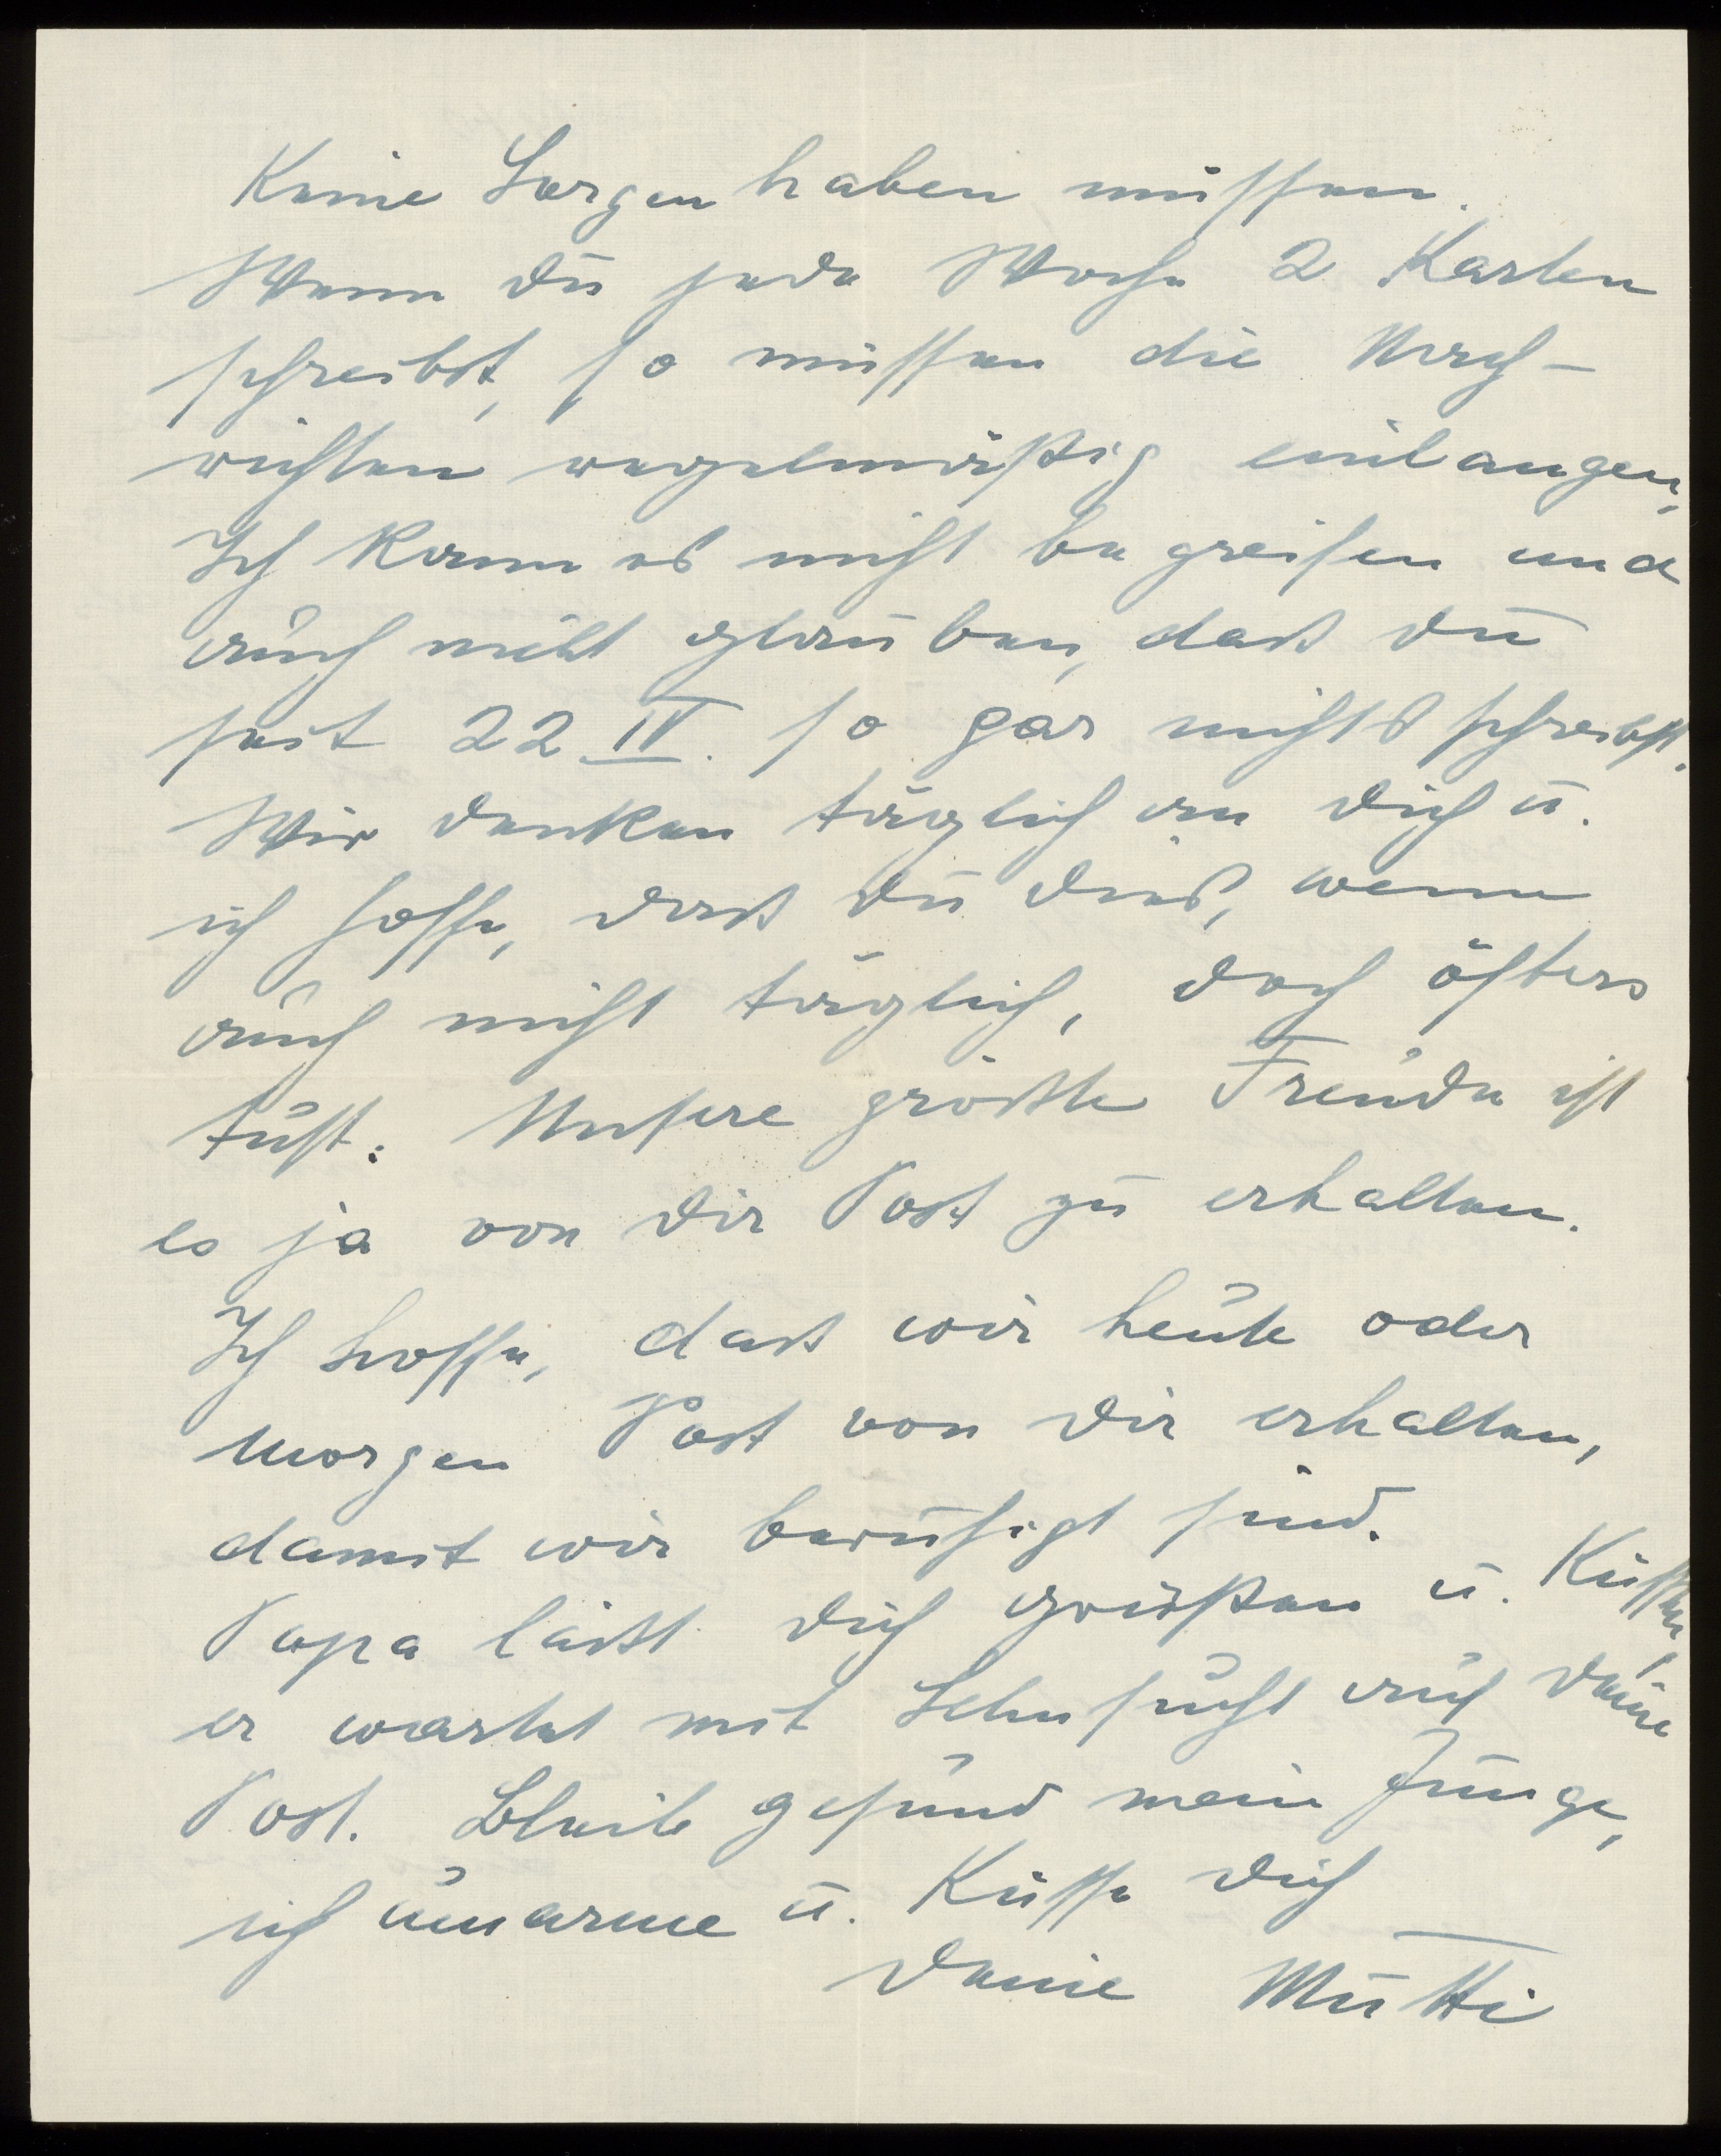 Keine Sorgen haben müssen.
Wenn Du jede Woche 2 Karten
schreibst, so müssen die Nach-
richten regelmäßig einlangen,
Ich kann es nicht begreifen und
auch nicht glauben, dass Du
seit 22 IV. so gar nichts schreibst.
Wir denken täglich an Dich u.
ich hoffe, dass Du dies, wenn
auch nicht täglich, doch öfters
tust. Unsere grösste Freude ist
es ja von Dir Post zu erhalten.
Ich hoffe, dass wir heute oder
morgen Post von Dir erhalten,
damit wir beruhigt sind.
Papa lässt Dich grüßen u. Küssen,
er wartet mit Sehnsucht auf Deine
Post. Bleib gesund mein Junge,
ich umarme u. Küsse Dich
Deine Mutti